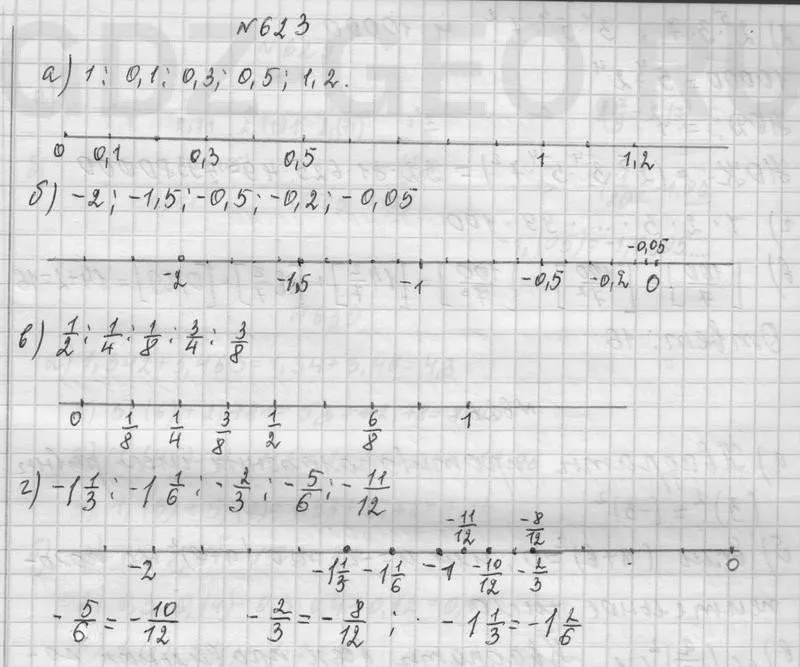 №623
а) 1; 0,1; 0,3; 0,5; 1,2.
0 0,1 0,3 0,5 1 1,2
б) -2; -1,5; -0,5; -0,2; -0,05
-0,05
-2 -1,5 -1 -0,5 -0,2 0
в) 1/2; 1/4; 1/8; 3/4; 3/8
0 1/8 1/4 3/8 1/2 6/8 1
г) -1 1/3; -1 1/6; -2/3; -5/6; -11/12
-11/12 -8/12
-2 -1 1/3 -1 1/6 -1 -10/12 -2/3 0
-5/6 = -10/12 -2/3 = -8/12; -1 1/3 = -1 2/6